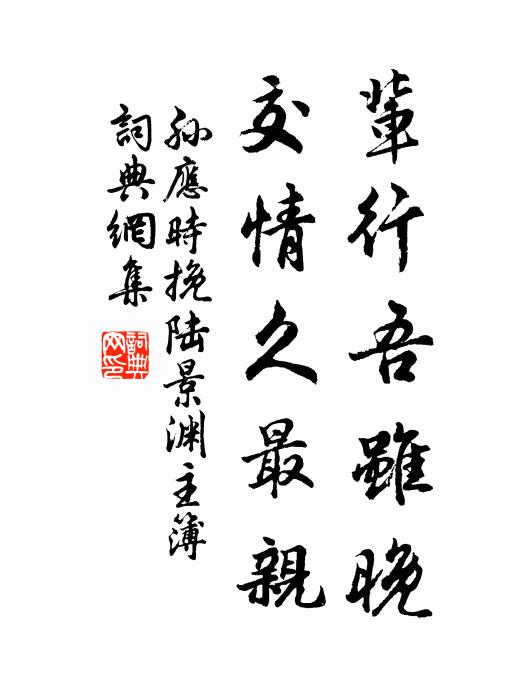 輩行吾雖晚
交情久最親
孫應時挽陸景淵主簿
詞典網集
詞典網印